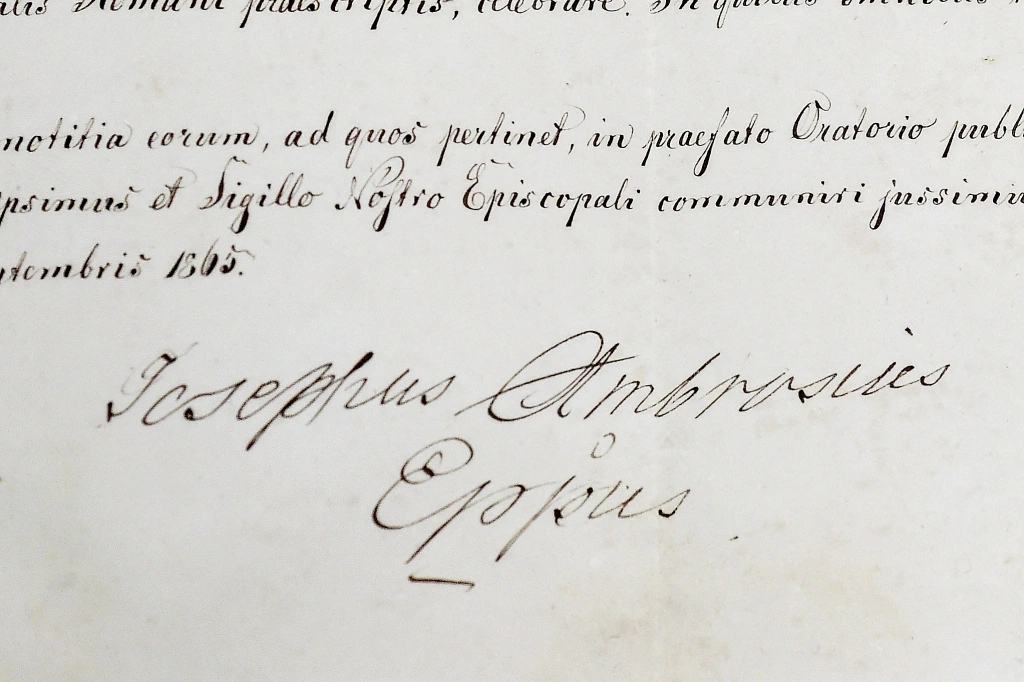 alis Romani praescriptis, celebrare. In quibus omnibus
notitia eorum, ad quos pertinet, in praefato Oratorio publ
psimus et Sigillo Nostro Episcopali communiri jussimu
tembris 1865.
Josephus Ambrosius
Eppus